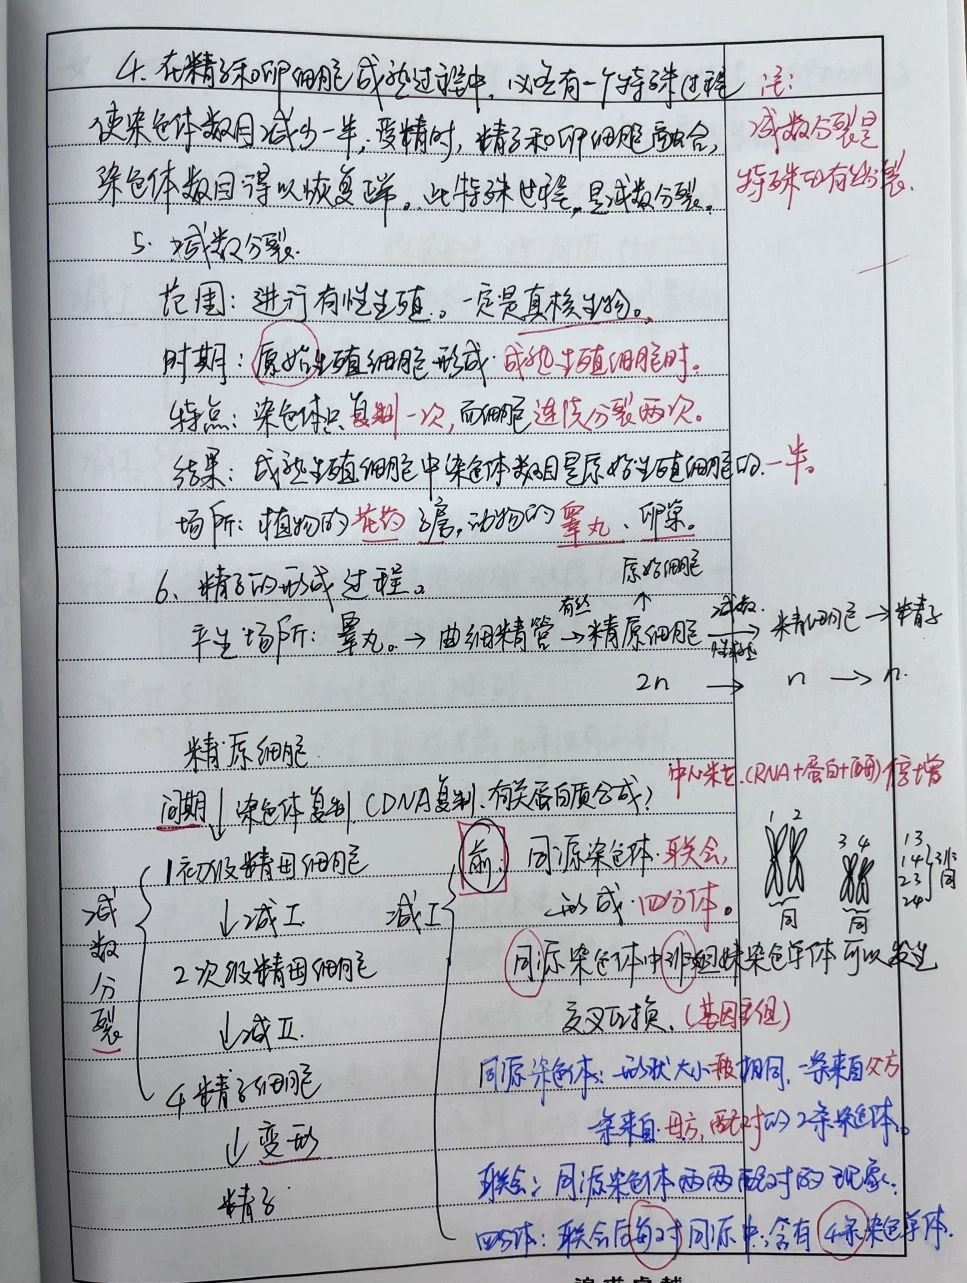 4. 在精子和卵细胞成熟过程中,必各有一个特殊过程
使染色体数目减少一半,受精时,精子和卵细胞融合,
染色体数目得以恢复正常。此特殊过程,是减数分裂。
注:
减数分裂是
特殊的有丝分裂.
5. 减数分裂.
范围: 进行有性生殖.。一定是真核生物。
时期: 原始生殖细胞形成·成熟生殖细胞时。
特点: 染色体只复制一次,而细胞连续分裂两次。
结果: 成熟生殖细胞中染色体数目是原始生殖细胞的一半。
场所: 植物的花药 ,动物的睾丸、卵巢。
6、精子的形成过程。
原始细胞
↑
场所: 睾丸。→ 曲细精管 有丝→ 精原细胞 减数→ 精细胞 → 精子
2n → n → n.
精原细胞
间期 ↓ 染色体复制 (DNA复制、有关蛋白质合成)
中心粒 (RNA+蛋白+酶) 倍增
1 初级精母细胞
↓减I.
2 次级精母细胞
↓减II.
4 精子细胞
↓变形
精子.
减数分裂
减I
前: 同源染色体·联会,
形成·四分体。
1 2
3 4
同
同
13
14
23
24
非同
同源染色体中非姐妹染色单体可以发生
交叉互换、(基因重组)
同源染色体: 形状大小一般相同,一条来自父方
一条来自母方,配对的2条染色体。
联会: 同源染色体两两配对的现象.
四分体: 联会后每对同源中,含有4条染色单体.
追求卓越